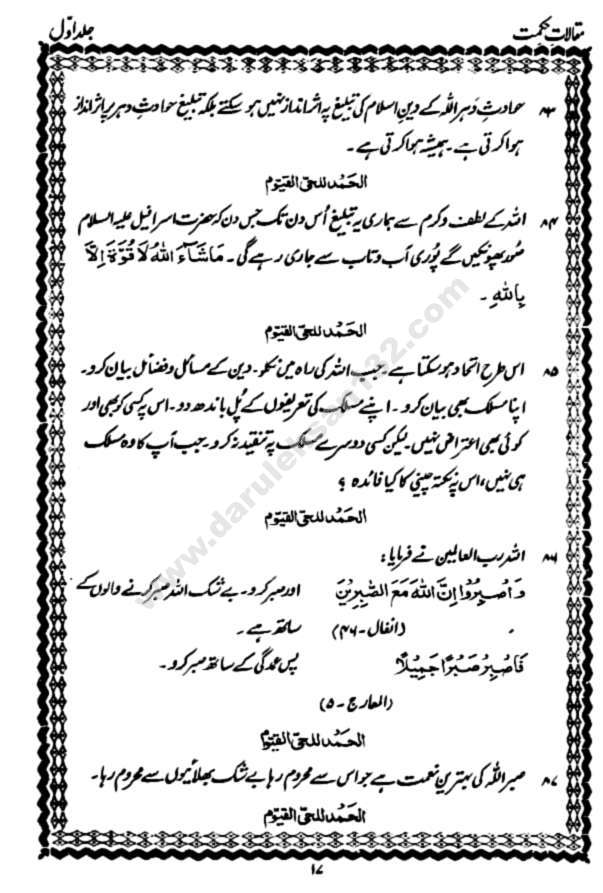 مقالاتِ حکمت
جلد اوّل
۸۳ حوادثِ دَہر اللہ کے دینِ اسلام کی تبلیغ پہ اثر انداز نہیں ہو سکتے بلکہ تبلیغ حوادثِ دہر پہ اثر انداز
ہوا کرتی ہے۔ ہمیشہ ہوا کرتی ہے۔
الحَمْد للحیّ القیّوم
۸۴ اللہ کے لطف و کرم سے ہماری یہ تبلیغ اُس دن تک جس دن کہ حضرت اسرافیل علیہ السلام
صُور پھونکیں گے پُوری آب و تاب سے جاری رہے گی۔ مَاشَآءَ اللهُ لَا قُوَّةَ اِلَّا
بِاللهِ ۔
الحَمْد للحیّ القیّوم
۸۵ اس طرح اتحاد ہو سکتا ہے۔ جب اللہ کی راہ میں نکلو۔ دین کے مسائل و فضائل بیان کرو۔
اپنا مسلک بھی بیان کرو۔ اپنے مسلک کی تعریفوں کے پُل باندھ دو۔ اس پر کسی کو بھی اور
کوئی بھی اعتراض نہیں۔ لیکن کسی دوسرے مسلک پہ تنقید نہ کرو۔ جب آپ کا وہ مسلک
ہی نہیں، اس پہ نکتہ چینی کا کیا فائدہ ؟
الحَمْد للحیّ القیّوم
۸۶ اللہ رب العالمین نے فرمایا:
وَاصْبِرُوْا اِنَّ اللهَ مَعَ الصّٰبِرِيْنَ اور صبر کرو۔ بے شک اللہ صبر کرنے والوں کے
(انفال۔۴۶) ساتھ ہے۔
فَاصْبِرْ صَبْرًا جَمِيْلًا پس عمدگی کے ساتھ صبر کرو۔
(المعارج۔۵)
الحَمْد للحیّ القیّوم
۸۷ صبر اللہ کی بہترین نعمت ہے جو اس سے محروم رہا بے شک بھلائیوں سے محروم رہا۔
الحَمْد للحیّ القیّوم
۱۷
www.darulehsan132.com